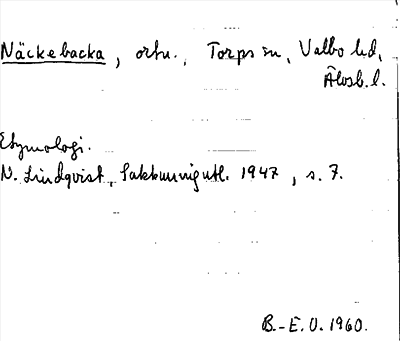 Näckebacka, ortn., Torps sn, Valbo hd,
Älvsb. l.
Etymologi.
N. Lindqvist, Sakkunnigutl. 1947, s. 7.
B.-E. O. 1960.